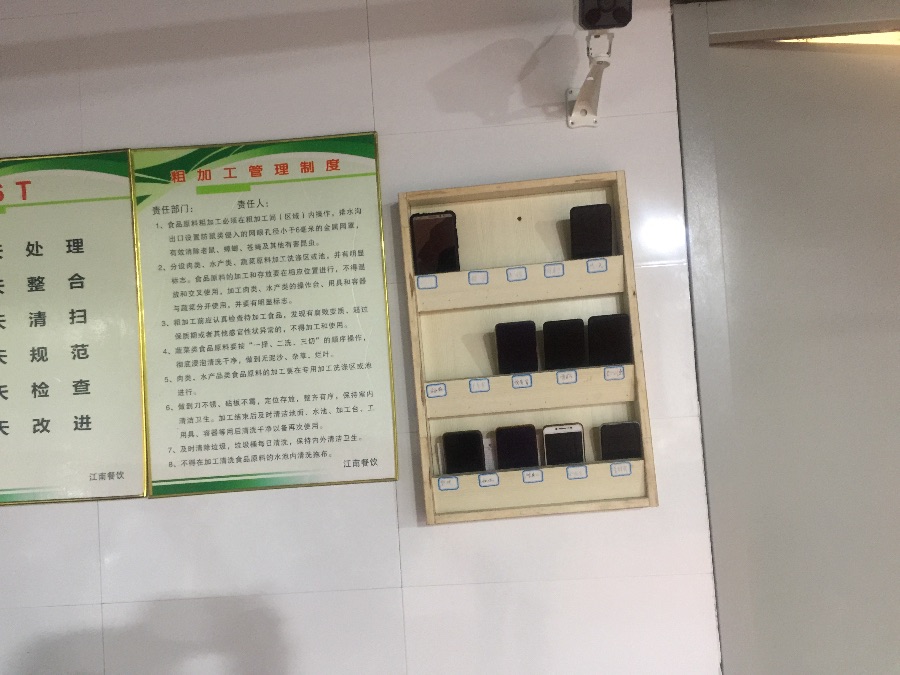 ST
天 处 理
天 整 合
天 清 扫
天 规 范
天 检 查
天 改 进
江南餐饮
粗 加 工 管 理 制 度
责任部门： 责任人：
1、食品原料粗加工必须在粗加工间（区域）内操作，排水沟
出口设置防鼠类侵入的网眼孔径小于6毫米的金属网罩，
有效消除老鼠、蟑螂、苍蝇及其他有害昆虫。
2、分设肉类、水产类、蔬菜原料加工洗涤区或池，并有明显
标志。食品原料的加工和存放要在相应位置进行，不得混
放和交叉使用，加工肉类、水产类的操作台、用具和容器
与蔬菜分开使用，并要有明显标志。
3、粗加工前应认真检查待加工食品，发现有腐败变质、超过
保质期或者其他感官性状异常的，不得加工和使用。
4、蔬菜类食品原料要按“一择、二洗、三切”的顺序操作，
彻底浸泡清洗干净，做到无泥沙、杂草、烂叶。
5、肉类、水产品类食品原料的加工要在专用加工洗涤区或池
进行。
6、做到刀不锈、砧板不霉，定位存放，整齐有序，保持室内
清洁卫生。加工结束后及时清洁地面、水池、加工台、工
用具、容器等用后清洗干净以备再次使用。
7、及时清除垃圾，垃圾桶每日清洗，保持内外清洁卫生。
8、不得在加工清洗食品原料的水池内清洗拖布。
江南餐饮